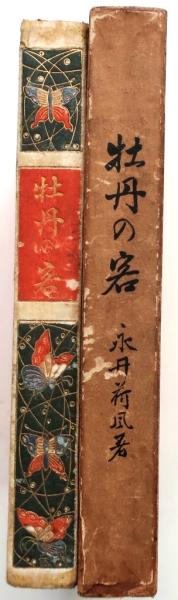 牡丹の客
牡丹の客
永井荷風著